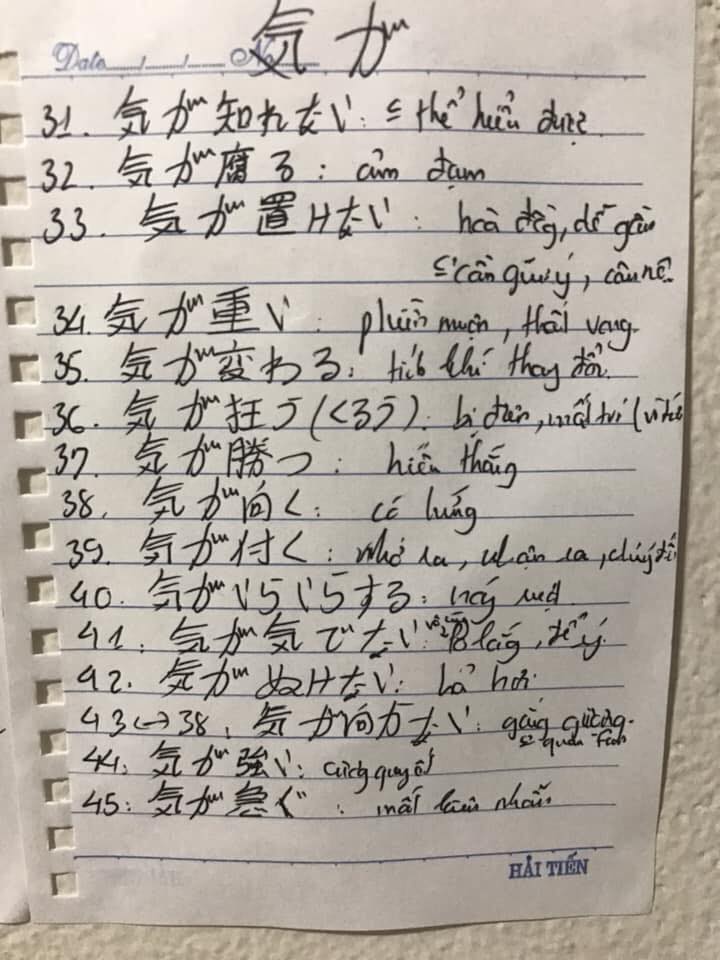 気が
Date / / No
31. 気が知れない: thể hiểu được
32. 気が腐る: ảm đạm
33. 気が置けない: hoà đồng, dễ gần
cần giữ ý, câu nệ
34. 気が重い: phiền muộn, thất vọng
35. 気が変わる: tiết khí thay đổi
36. 気が狂う(くるう): bị điên, mất trí (vì
37. 気が勝つ: hiếu thắng
38. 気が向く: có hứng
39. 気が付く: nhớ ra, nhận ra, chú ý
40. 気がいらいらする: nóng ruột
41: 気が気でない: lo lắng, để ý
42. 気がぬけない: hả hơi
43 ↔ 38. 気が向かない: gắng gượng
quan tâm
44: 気が強い: cứng quyết
45: 気が急ぐ: mất kiên nhẫn
HẢI TIẾN